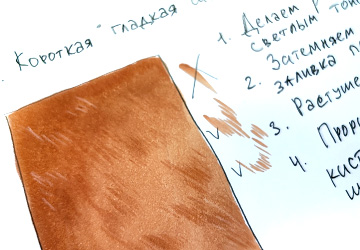 Короткая "гладкая
1. Делаем
светлым
2. Затемняем
заливка
3. Растуше
4. Прор
кист